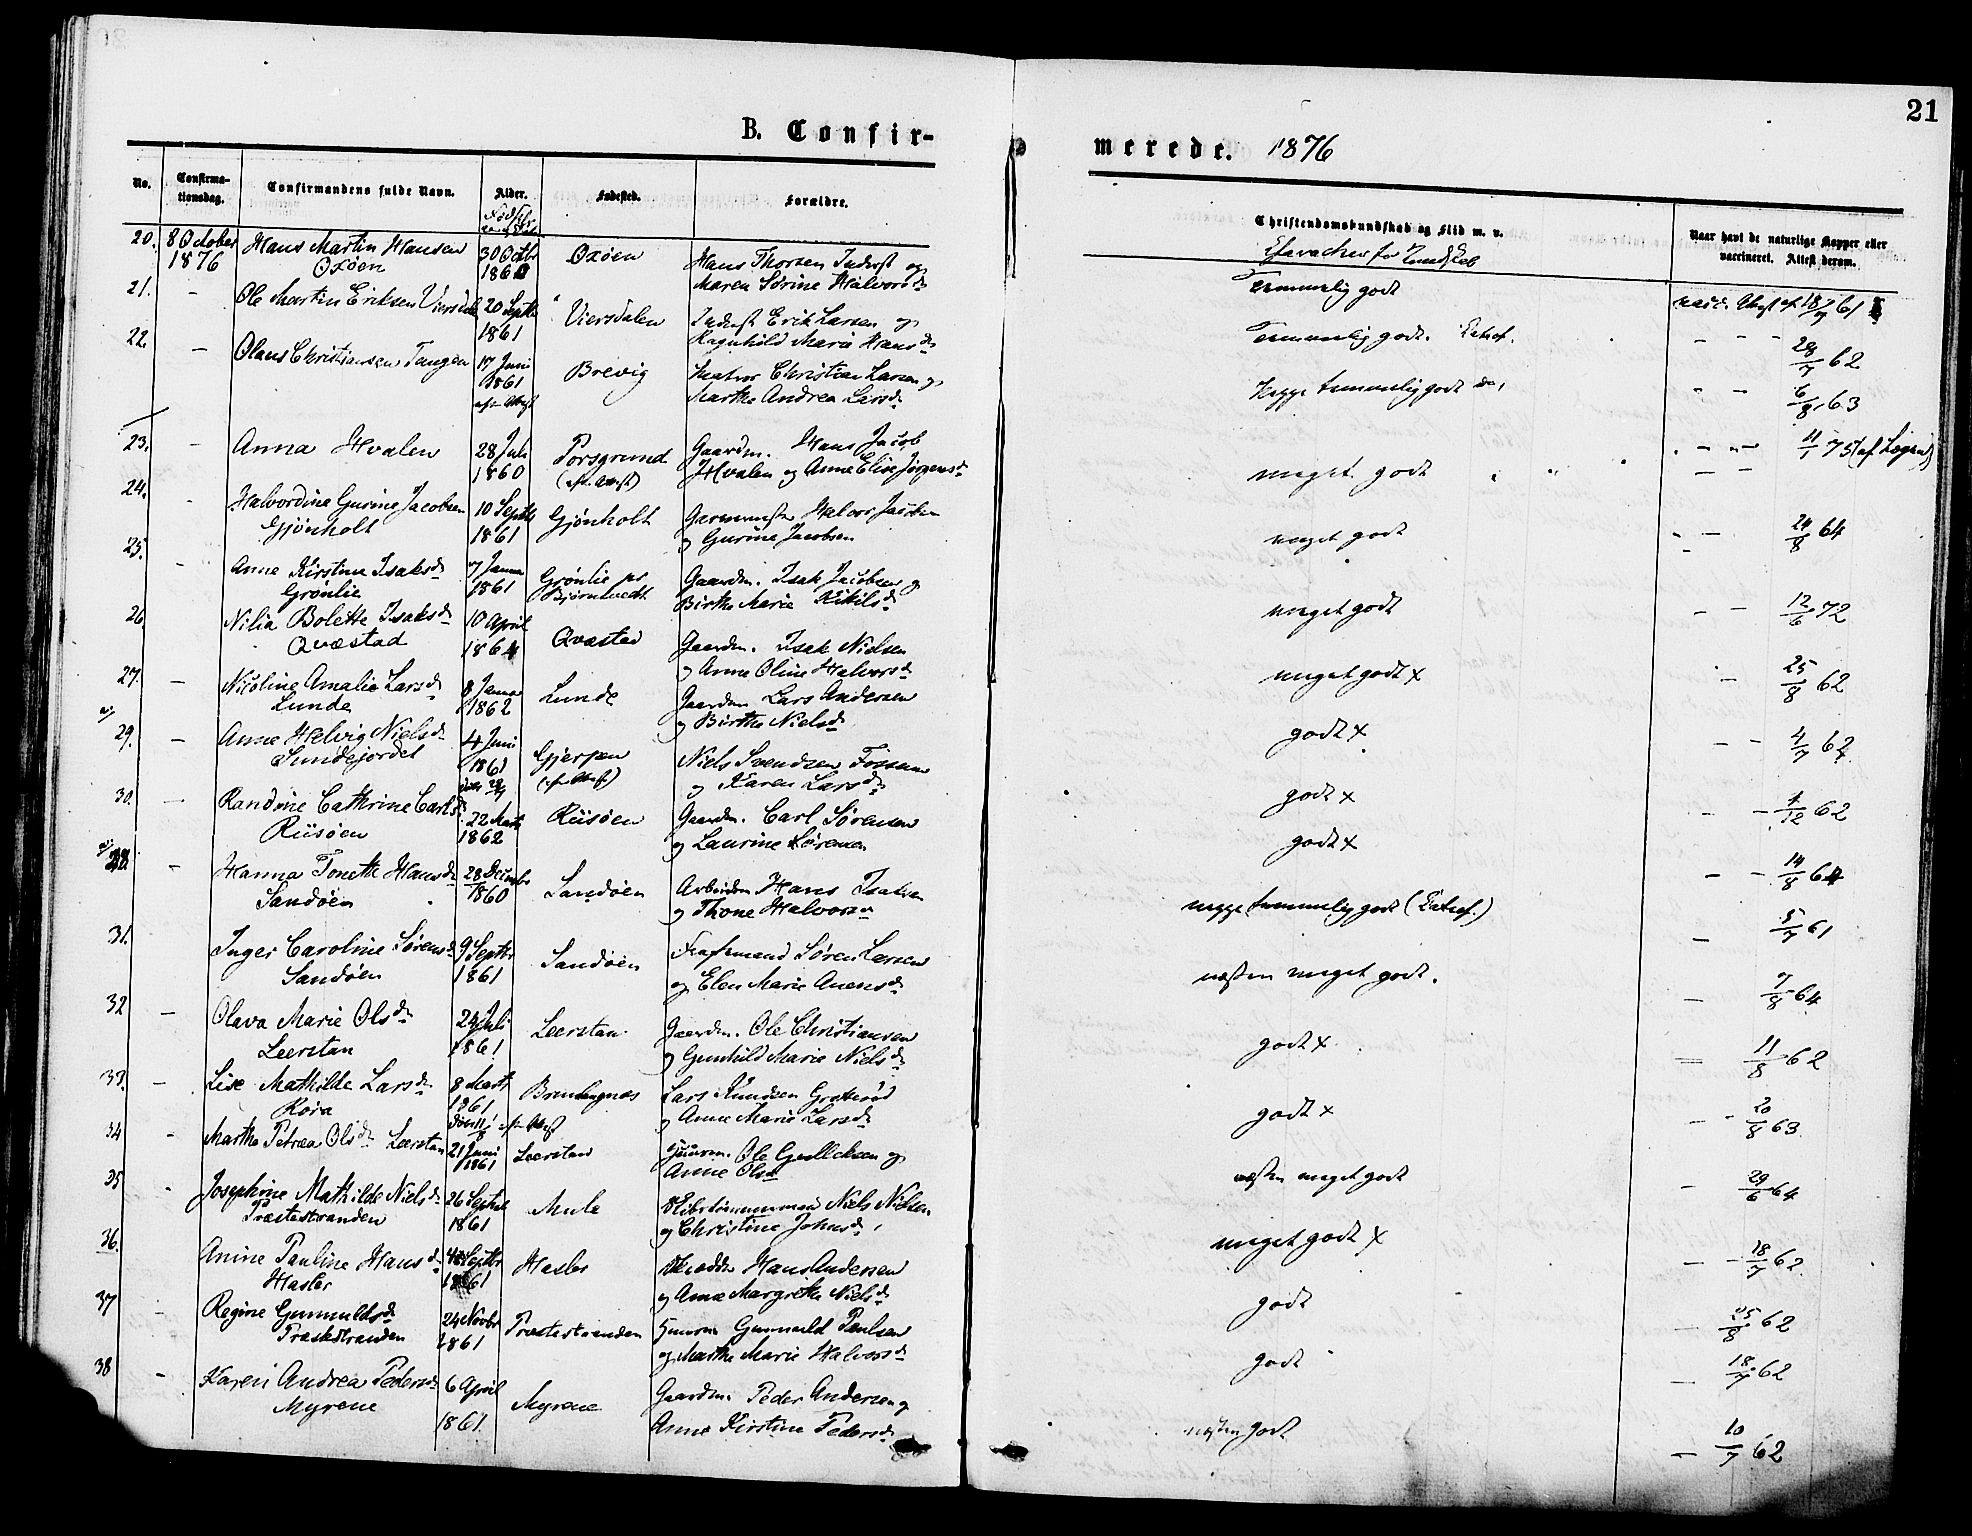 21
B. Confir-
merede. 1876
No.
Confirma-
tionsdag.
Confirmandens fulde Navn.
Alder.
Fødested.
Forældre.
Christendomskundskab og Flid m. v.
Naar havt de naturlige Kopper eller
vaccineret. Attest derom.
20. 8 October Hans Martin Hansen 30 Octbr Oxøen Hans Thorsen Inderst og
1876 Oxøen 1860 Maren Sørine Halvorsd.
Temmelig godt vacc. Attest af 18/7 61
21. - Ole Martin Eriksen Viersdalen 20 Septbr Viersdalen Inderst Erik Larsen og
1861 Ragnhild Marie Hansd.
Temmelig godt. - - - 28/7 62
22. - Olaus Christiansen Tangen 17 Juni Brevig Matros Christian Larsen og
1861 Marthe Andrea Larsd.
efter Attest
temmelig godt - - 6/8 63
23. - Anna Hvalen 28 Juli Porsgrund Gaardm. Hans Jacob
1860 (eft. Attest) Hvalen og Anne Elise Jørgensd.
meget godt - - - 11/1 75 (af Logen)
24. - Halvordine Gurine Jacobsen 10 Septbr Gjønholt Halvor Jacobsen
Gjønholt 1861 og Gurine Jacobsen
meget godt - - 24/8 64
25. - Anne Kirstine Isaksd. 7 Januar Grønlie ps Gaardm. Isak Jacobsen og
Grønlie 1861 Bjørntvedt Birthe Marie Kitilsd.
meget godt - - 12/6 72
26. Nilia Bolette Isaksd. 10 April Qvæstad Gaardm. Isak Nielsen
Qvæstad 1861 og Anne Oline Halvorsd.
meget godt x - 25/8 62
27. - Nicoline Amalie Larsd. 8 Januar Lunde Gaardm Lars Andersen
Lunde 1862 og Birthe Nielsd.
godt x - - 4/7 62
29. - Anne Helvig Nielsd. 4 Juni Gjerpen Niels Svendsen Fossum
Lundejordet 1861 (eft. Attest) og Karen Larsd.
godt x - - 1/12 62
30. - Randine Cathrine Carlsd. 22 Marts Riisøen Gaardm. Carl Sørensen
Riisøen 1862 og Laurine Sørensen
godt x - - 14/8 64
28. - Hanna Tonette Hansd. 28 Decembr Sandøen Arbeidsm Hans Isaksen
Sandøen 1860 og Thone Halvorsen
temmelig godt - 5/7 61
31. Inger Caroline Sørensd. 9 Septbr Sandøen Søren Larsen
Sandøen 1861 og Elen Marie Anensd.
næsten meget godt. - 7/8 64
32 - Olava Marie Olsd. 24 Juli Leerstan Gaardm. Ole Christiansen
Leerstan 1861 og Gunhild Marie Nielsd.
godt x - 11/8 62
33. - Lise Mathilde Larsd. 8 Marts Lars Knudsen Graterød
Røra 1861 og Anne Marie Larsd.
døbt 11/8 eft. Attest
godt x - 20/8 63.
34 - Marthe Petrea Olsd. Leerstan 21 Juni Leerstan Gaardm. Ole Gulleksen og
1861 Anne Olsd.
næsten meget godt - 29/6 64
35 - Josephine Mathilde Nielsd. 26 Septbr Mule Niels Nielsen
Præstestranden 1861 og Christine Johnsd.
meget godt x - - 18/7 62.
36. Anine Pauline Hansd. Septbr Hasler Skrædder Hans Andersen
Hasler 1861 og Anne Margrethe Nielsd.
godt - 25/8 62
37 - Regine Gunnuldsd. 24 Novbr Præstestranden Gunnuld Paulsen
Præstestranden 1861 og Marthe Marie Halvorsd.
godt - 18/7 62
38 - Karen Andrea Pedersd. 6 April Myrene Gaardm. Peder Andersen og
Myrene 1861. Anne Kirstine Pedersd.
næsten godt. - 10/7 62